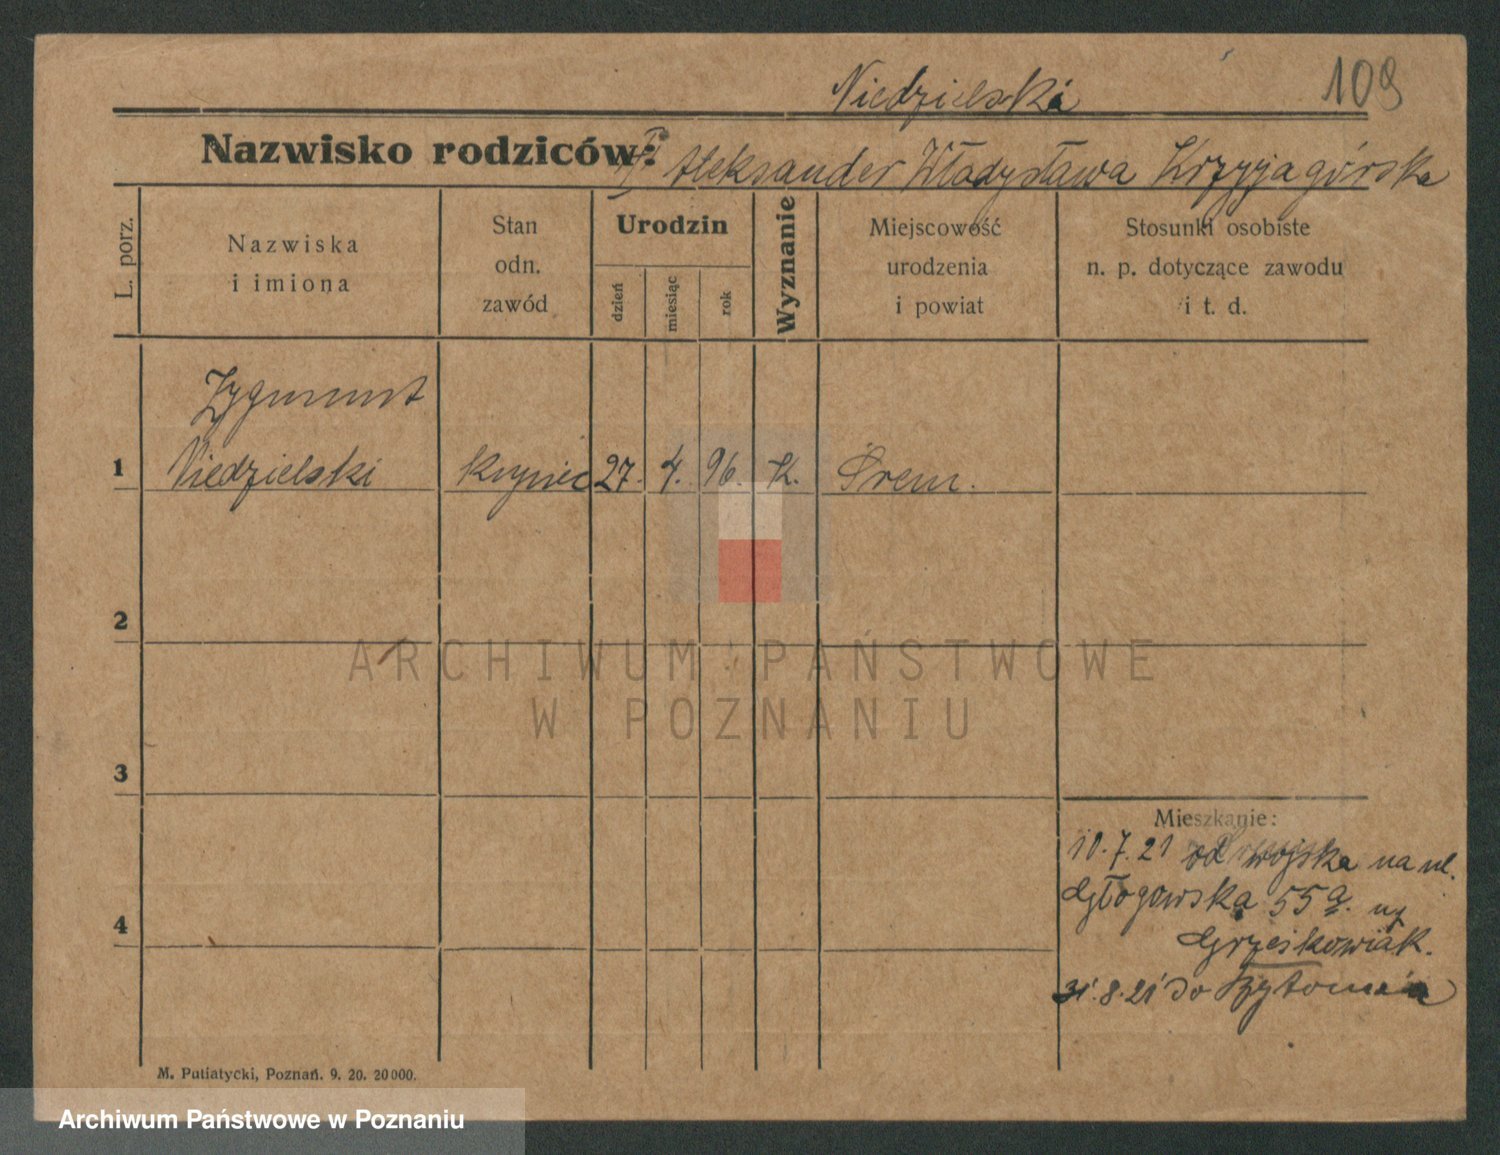 Niedzielski 109
Nazwisko rodziców: Aleksander Władysława Krzyjagórska
L. porz.
Nazwiska
i imiona
Stan
odn.
zawód
Urodzin
dzień
miesiąc
rok
Wyznanie
Miejscowość
urodzenia
i powiat
Stosunki osobiste
n. p. dotyczące zawodu
i t. d.
Zygmunt
1 Niedzielski kupiec 27. 4. 96. K. Śrem.
2
ARCHIWUM PAŃSTWOWE
W POZNANIU
3
Mieszkanie:
10.7.21 od wojska na ul.
Głogowska 55a.
4
Grześkowiak.
31.8.21 do Bytomia
M. Putiatycki, Poznań. 9. 20. 20000.
Archiwum Państwowe w Poznaniu